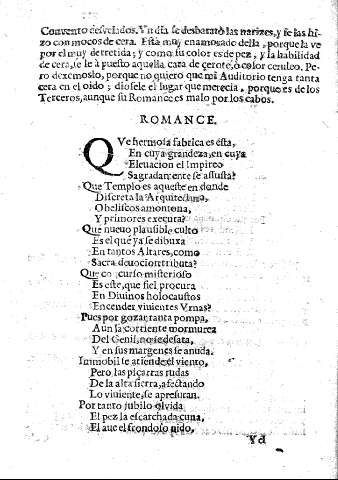 Convento desvelados. Vn dia se desbaratò las narizes, y se las hi-
zo con mocos de cera. Està muy enamorado della, porque la ve
por el muy derretida; y como su color es de pez, y la habilidad
de cera, se le à puesto aquella cara de cerote, ò color ceruleo. Pe-
ro dexemoslo, porque no quiero que mi Auditorio tenga tanta
cera en el oido; diosele el lugar que merecia, porque es de los
Terceros, aunque su Romance es malo por los cabos.
ROMANCE.
QVe hermosa fabrica es èsta,
En cuya grandeza, en cuya
Eleuacion el Impireo
Sagradamente se assusta?
Que Templo es aqueste en donde
Discreta la Arquitectura,
Obeliscos amontona,
Y primores executa?
Què nueuo plausible culto
Es el que ya se dibuxa
En tantos Altares, como
Sacra deuocion tributa?
Que concurso misterioso
Es este, que fiel procura
En Diuinos holocaustos
Encender vivientes Vrnas?
Pues por gozar tanta pompa,
Aun la corriente mormurea
Del Genil, no se desata,
Y en sus margenes se anuda.
Immobil se atiende el viento,
Pero las piçarras rudas
De la alta sierra, afectando
Lo viuiente, se apresuran.
Por tanto jubilo olvida
El pez la escarchada cuna,
El aue el frondoso nido,
Yd